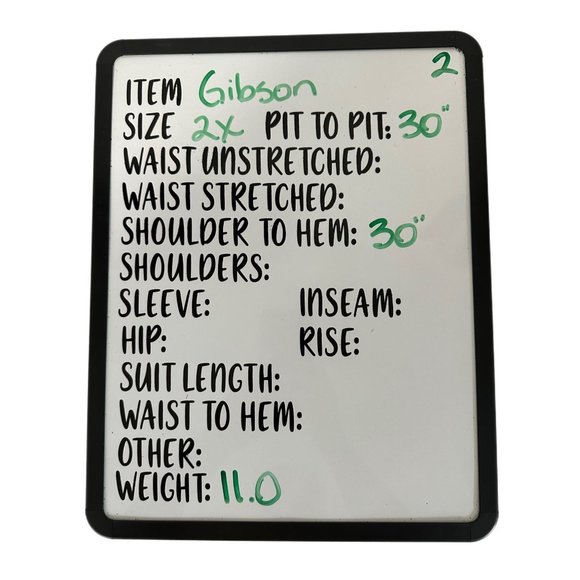 2
ITEM Gibson
SIZE 2X PIT TO PIT: 30"
WAIST UNSTRETCHED:
WAIST STRETCHED:
SHOULDER TO HEM: 30"
SHOULDERS:
SLEEVE: INSEAM:
HIP: RISE:
SUIT LENGTH:
WAIST TO HEM:
OTHER:
WEIGHT: 11.0